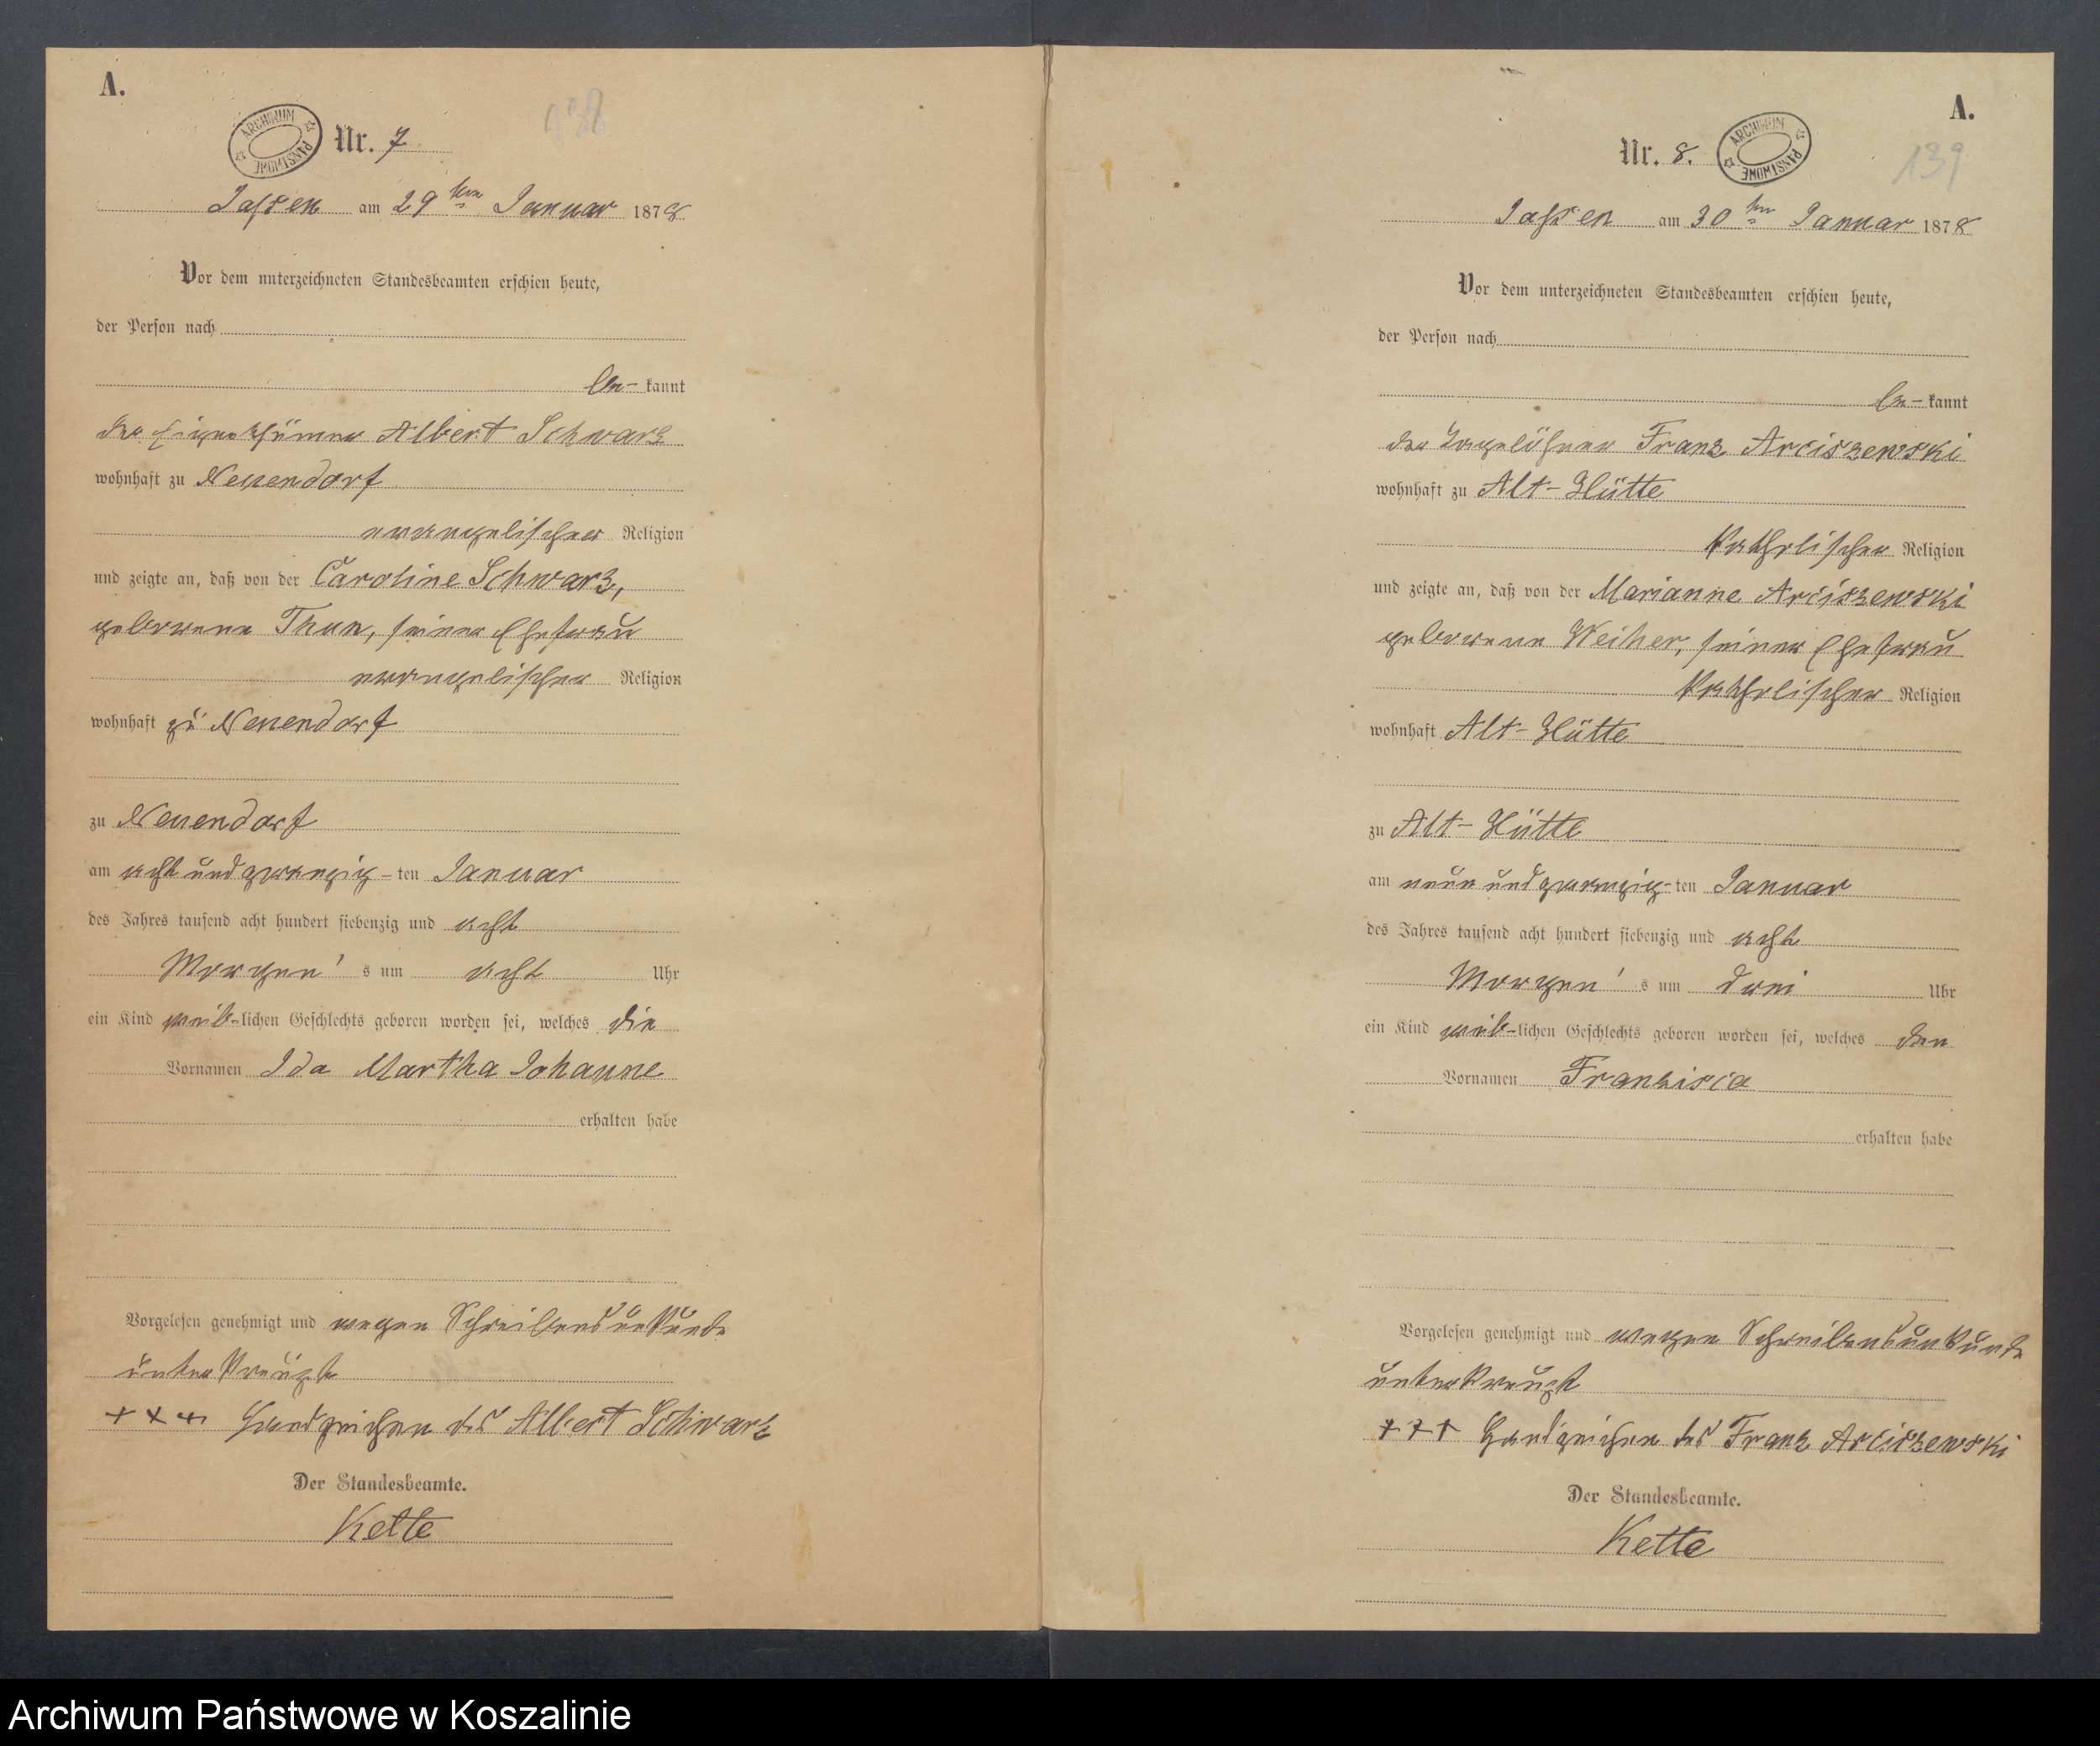 A.
ARCHIWUM PAŃSTWOWE
Nr. 7
138
Jassen am 29ten Januar 1878
Vor dem unterzeichneten Standesbeamten erschien heute,
der Person nach
be- kannt
der Eigenthümer Albert Schwarz
wohnhaft zu Neuendorf
evangelischer Religion
und zeigte an, daß von der Caroline Schwarz,
geborene Thun, seiner Ehefrau
evangelischer Religion
wohnhaft zu Neuendorf
zu Neuendorf
am acht und zwanzig-ten Januar
des Jahres tausend acht hundert siebenzig und acht
Morgen's um acht Uhr
ein Kind weib-lichen Geschlechts geboren worden sei, welches die
Vornamen Ida Martha Johanne
erhalten habe
Vorgelesen genehmigt und wegen Schreibensunkunde
unterkreuzt
+ + + Handzeichen des Albert Schwarz
Der Standesbeamte.
Kette
A.
Nr. 8.
ARCHIWUM PAŃSTWOWE
139
Jassen am 30ten Januar 1878
Vor dem unterzeichneten Standesbeamten erschien heute,
der Person nach
be- kannt
der Tagelöhner Franz Arciszewski
wohnhaft zu Alt-Hütte
katholischer Religion
und zeigte an, daß von der Marianne Arciszewski
geborene Weiher, seiner Ehefrau
katholischer Religion
wohnhaft Alt-Hütte
zu Alt-Hütte
am neun und zwanzig-ten Januar
des Jahres tausend acht hundert siebenzig und acht
Morgen's um drei Uhr
ein Kind weib-lichen Geschlechts geboren worden sei, welches den
Vornamen Franzisca
erhalten habe
Vorgelesen genehmigt und wegen Schreibensunkunde
unterkreuzt
+ + + Handzeichen des Franz Arciszewski
Der Standesbeamte.
Kette
Archiwum Państwowe w Koszalinie